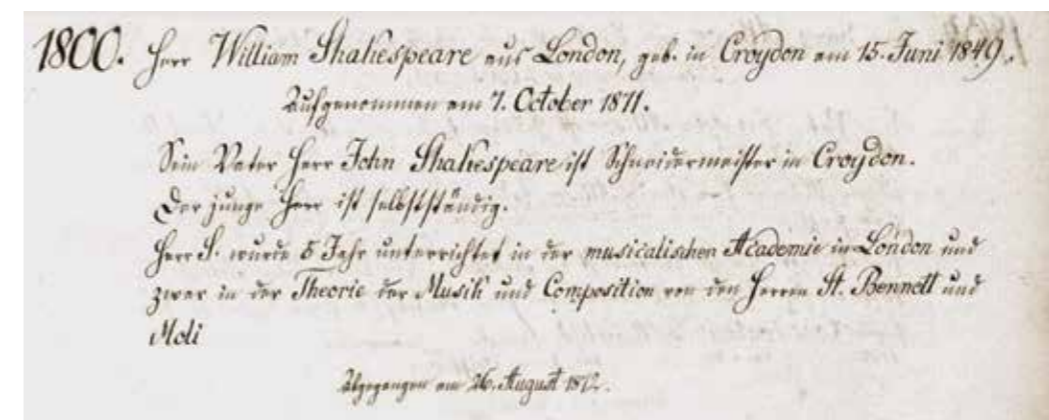 1800. Herr William Shakespeare aus London, geb. in Croydon am 15. Juni 1849.
Aufgenommen am 7. October 1871.
Sein Vater Herr John Shakespeare ist Schneidermeister in Croydon.
Der junge Herr ist selbstständig.
Herr S. wurde 5 Jahr unterrichtet in der musicalischen Academie in London und
zwar in der Theorie der Musik und Composition von den Herren St. Bennett und
Moli
Abgegangen am 26. August 1872.